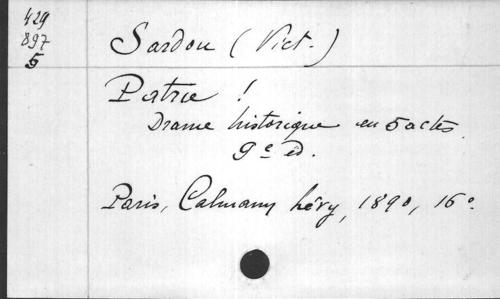 429
897
5
Sardou (Vict.)
Patrie !
Drame historique en 5 actes
9e éd.
Paris, Calmann Lévy, 1890, 16°.